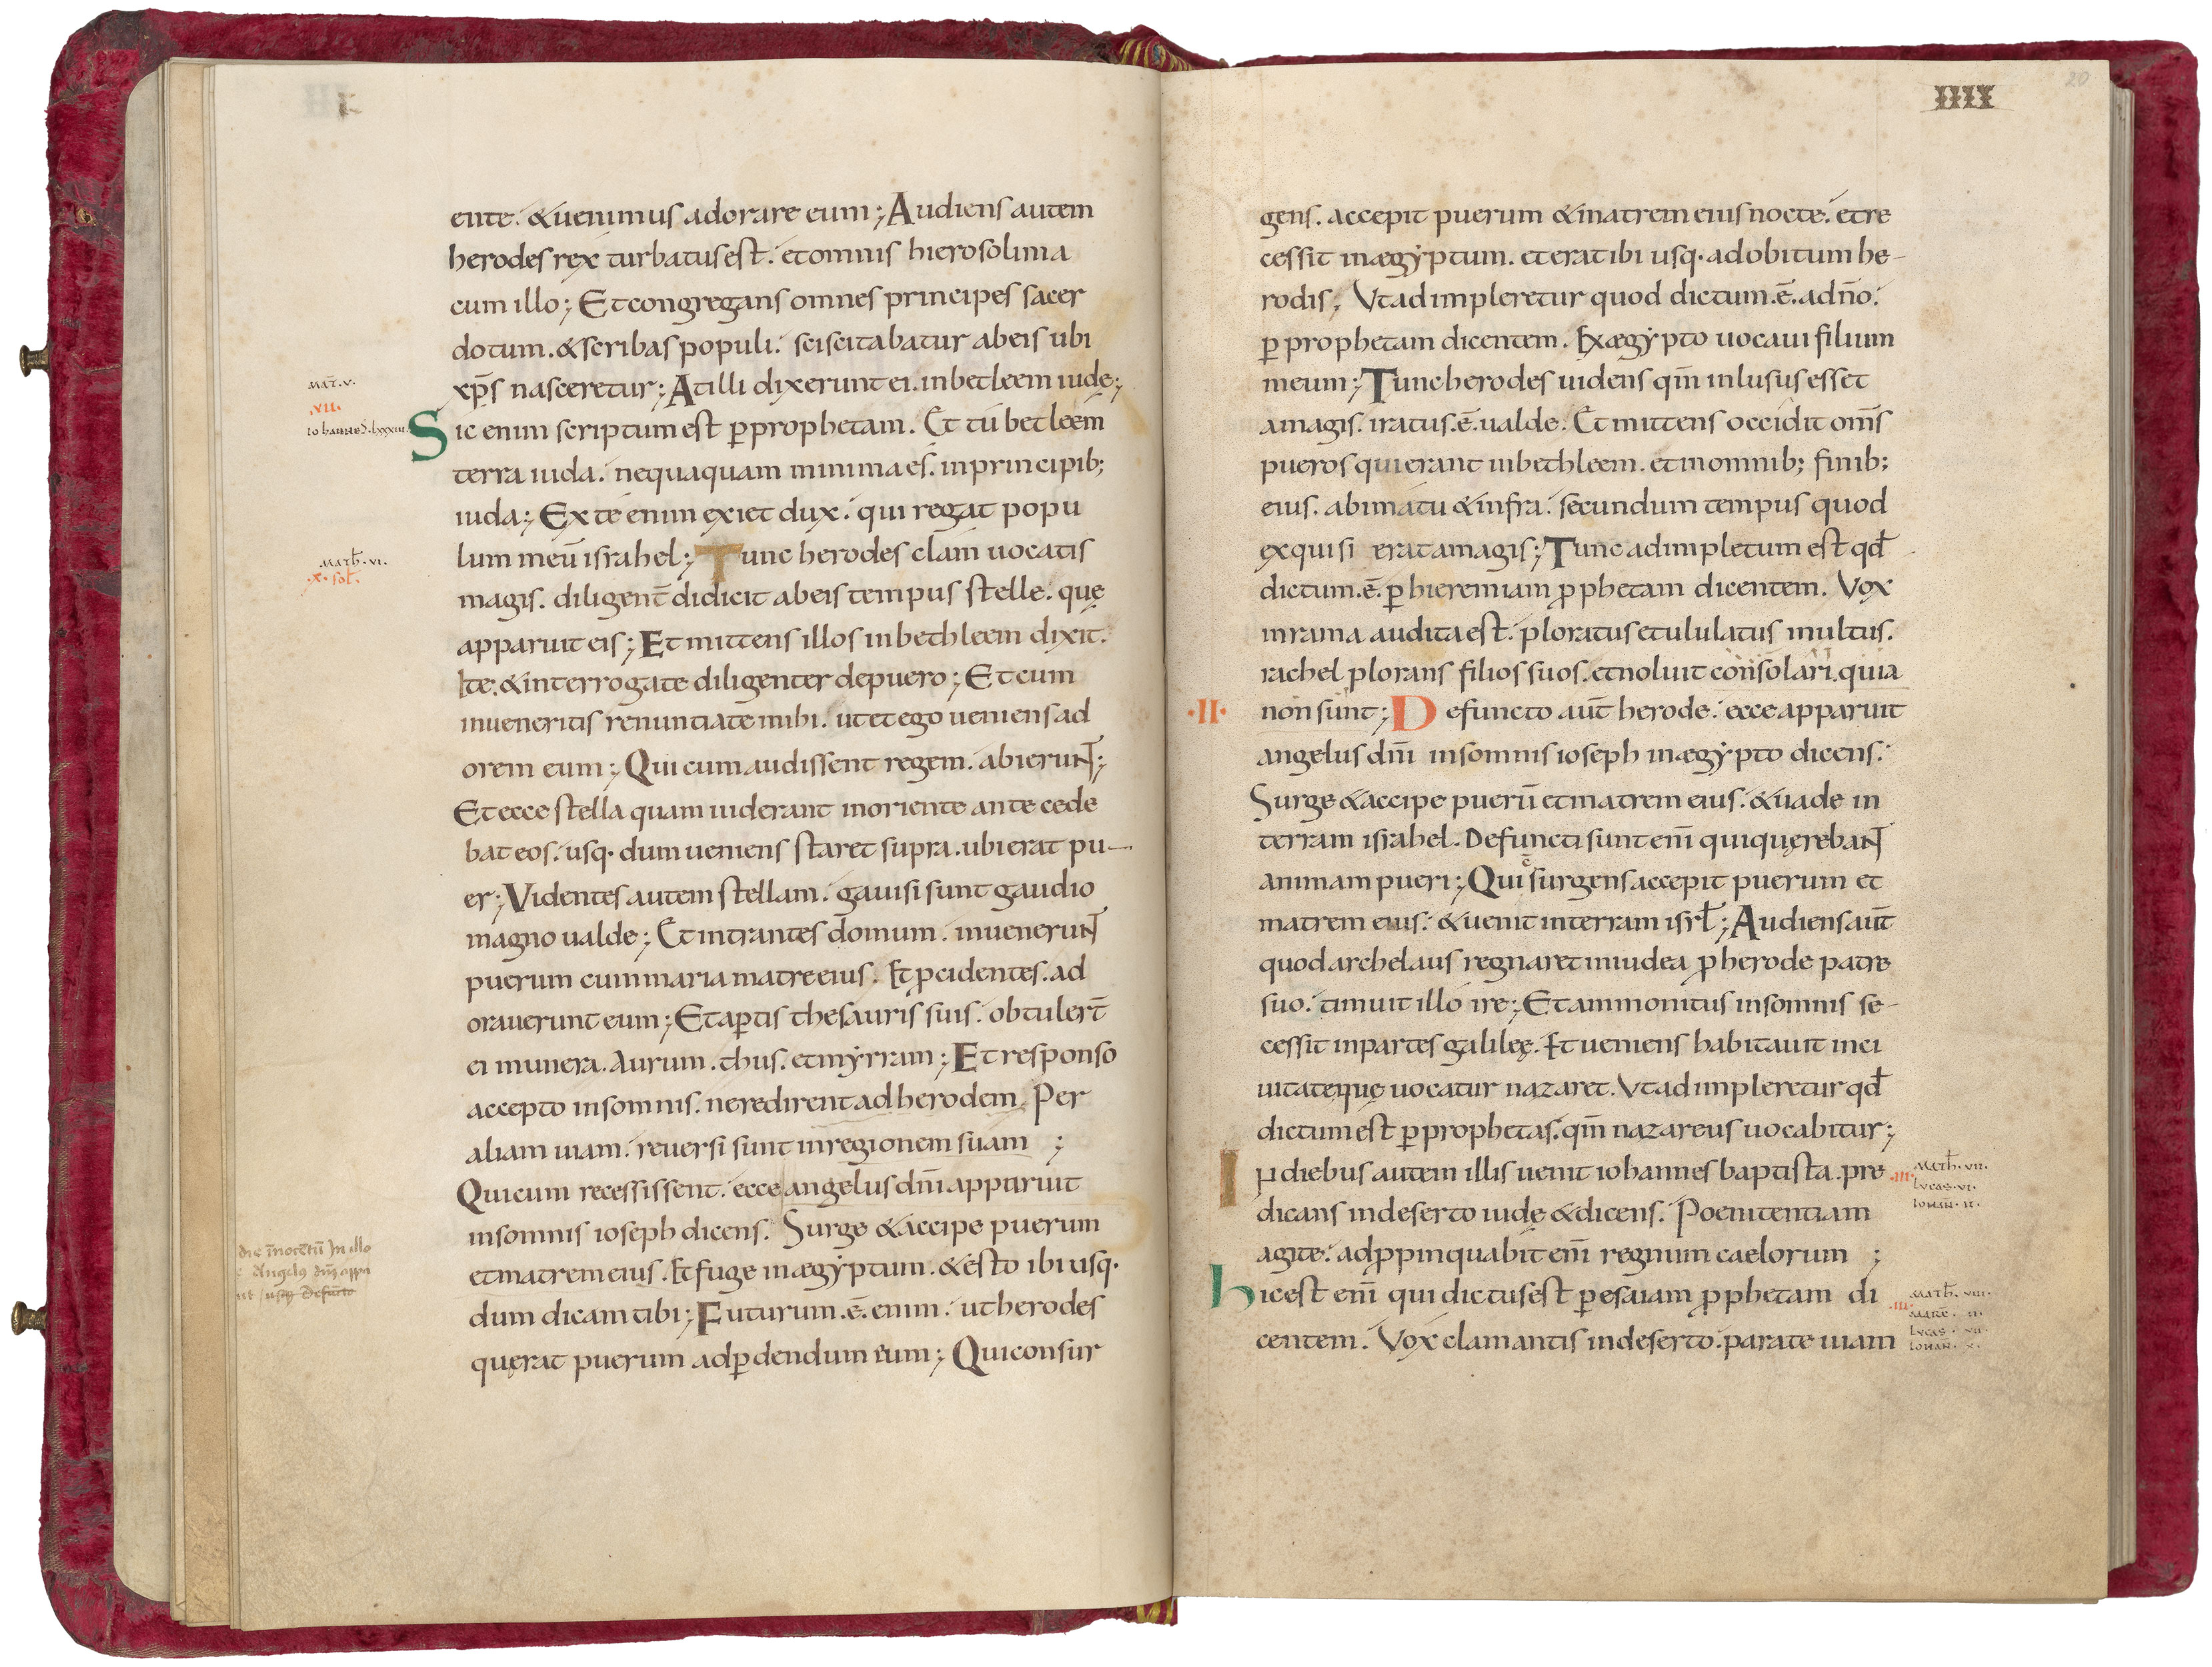 ente. & uenimus adorare eum; Audiens autem
herodes rex turbatus est. et omnis hierosolima
cum illo; Et congregans omnes principes sacer
dotum. & scribas populi. sciscitabatur ab eis ubi
xp̄s nasceretur; At illi dixerunt ei. in betleem iudę;
Sic enim scriptum est ꝑ prophetam. Et tu betleem
terra iuda. nequaquam minima es. in principib;
iuda; Ex te enim exiet dux. qui regat popu
lum meū israhel; Tunc herodes clam uocatis
magis. diligent̄ didicit ab eis tempus stelle. quę
apparuit eis; Et mittens illos in bethleem dixit.
Ite. & interrogate diligenter de puero; Et cum
inueneritis renuntiate mihi. ut et ego ueniens ad
orem eum; Qui cum audissent regem. abierunt;
Et ecce stella quam uiderant in oriente ante cede
bat eos. usq. dum ueniens staret supra. ubi erat pu-
er; Videntes autem stellam. gauisi sunt gaudio
magno ualde; Et intrantes domum. inuenerunt
puerum cum maria matre eius. Et ꝓcidentes. ad
orauerunt eum; Et aꝑtis thesauris suis. obtulert̄
ei munera. Aurum. thus. et myrram; Et responso
accepto in somnis. ne redirent ad herodem. Per
aliam uiam. reuersi sunt in regionem suam ;
Qui cum recessissent. ecce angelus dn̄i apparuit
in somnis ioseph dicens. Surge & accipe puerum
et matrem eius. Et fuge in ægyptum. & esto ibi usq.
dum dicam tibi; Futurum .ē. enim. ut herodes
quęrat puerum ad ꝑdendum eum; Qui consur
MAT̄. V.
.VII.
IOHANNES. LXXXIII.
MATH̄. VI.
.X. sol̄.
die īnocētū In illo
Angelus dn̄i appa
usq; Defūcto
IIII
20
gens. accepit puerum & matrem eius nocte. et re
cessit in ægyptum. et erat ibi usq. ad obitum he-
rodis. Vt ad impleretur quod dictum .ē. a dn̄o.
ꝑ prophetam dicentem. Ex ægypto uocaui filium
meum; Tunc herodes uidens qm̄ inlusus esset
a magis. iratus .ē. ualde. Et mittens occidit om̄s
pueros qui erant in bethleem. et in omnib; finib;
eius. a bimatu & infra. secundum tempus quod
exquisi erat a magis; Tunc adimpletum est qd̄
dictum .ē. ꝑ hieremiam ꝓphetam dicentem. Vox
in rama audita est. ploratus et ululatus multus.
rachel plorans filios suos. et noluit consolari. quia
.II. non sunt; Defuncto aut̄ herode. ecce apparuit
angelus dn̄i in somnis ioseph in ægypto dicens.
Surge & accipe puerū et matrem eius. & uade in
terram israhel. Defuncti sunt eni̅ qui quęrebant
animam pueri; Qui surgens accepit puerum et
matrem eius. & uenit in terram isrl̄; Audiens aut̄
quod archelaus regnaret in iudea ꝓ herode patre
suo. timuit illo ire; Et ammonitus in somnis se-
cessit in partes galileę. Et ueniens habitauit in ci
uitate quę uocatur nazaret. Vt adimpleretur qd̄
dictum est ꝑ prophetas. qm̄ nazareus uocabitur;
In diebus autem illis uenit iohannes baptista. pre
dicans in deserto iudę & dicens. Poenitentiam
agite. adꝓpinquabit eni̅ regnum caelorum ;
hic est eni̅ qui dictus est ꝑ esaiam ꝓphetam di
centem. Vox clamantis in deserto. parate uiam
MATH̄. VII.
.III.
LVCAS. VI.
IOHAN̄. II.
MATH̄. VIII.
.III.
MARC̄. II.
LVCAS. VII.
IOHAN̄. X.